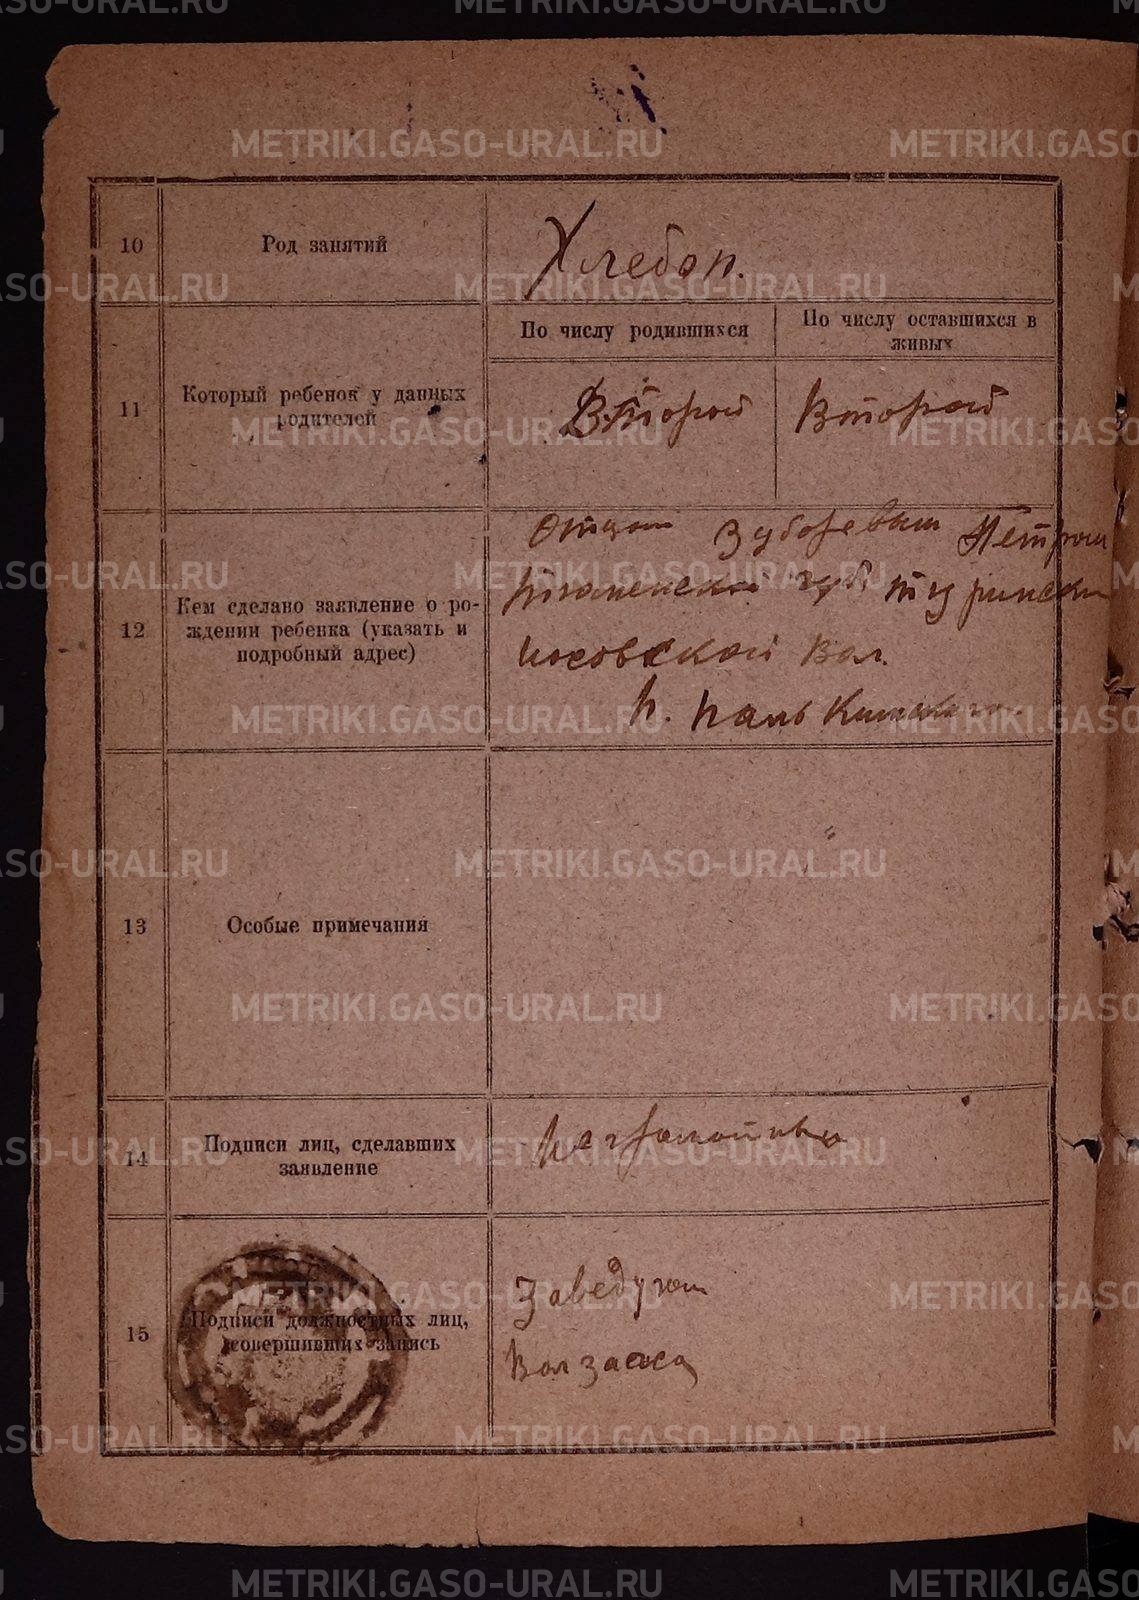 10
Род занятий
Хлебоп.
11
Который ребенок у данных
родителей
По числу родившихся
По числу оставшихся в
живых
Второй
Второй
12
Кем сделано заявление о ро-
ждении ребенка (указать и
подробный адрес)
Отцом Зубаревым Петром
Тюменской губ. Туринск
Носовской Вол.
13
Особые примечания
14
Подписи лиц, сделавших
заявление
Неграмотны
15
Подписи должностных лиц,
совершивших запись
Заведующ
Волзагса
METRIKI.GASO-URAL.RU